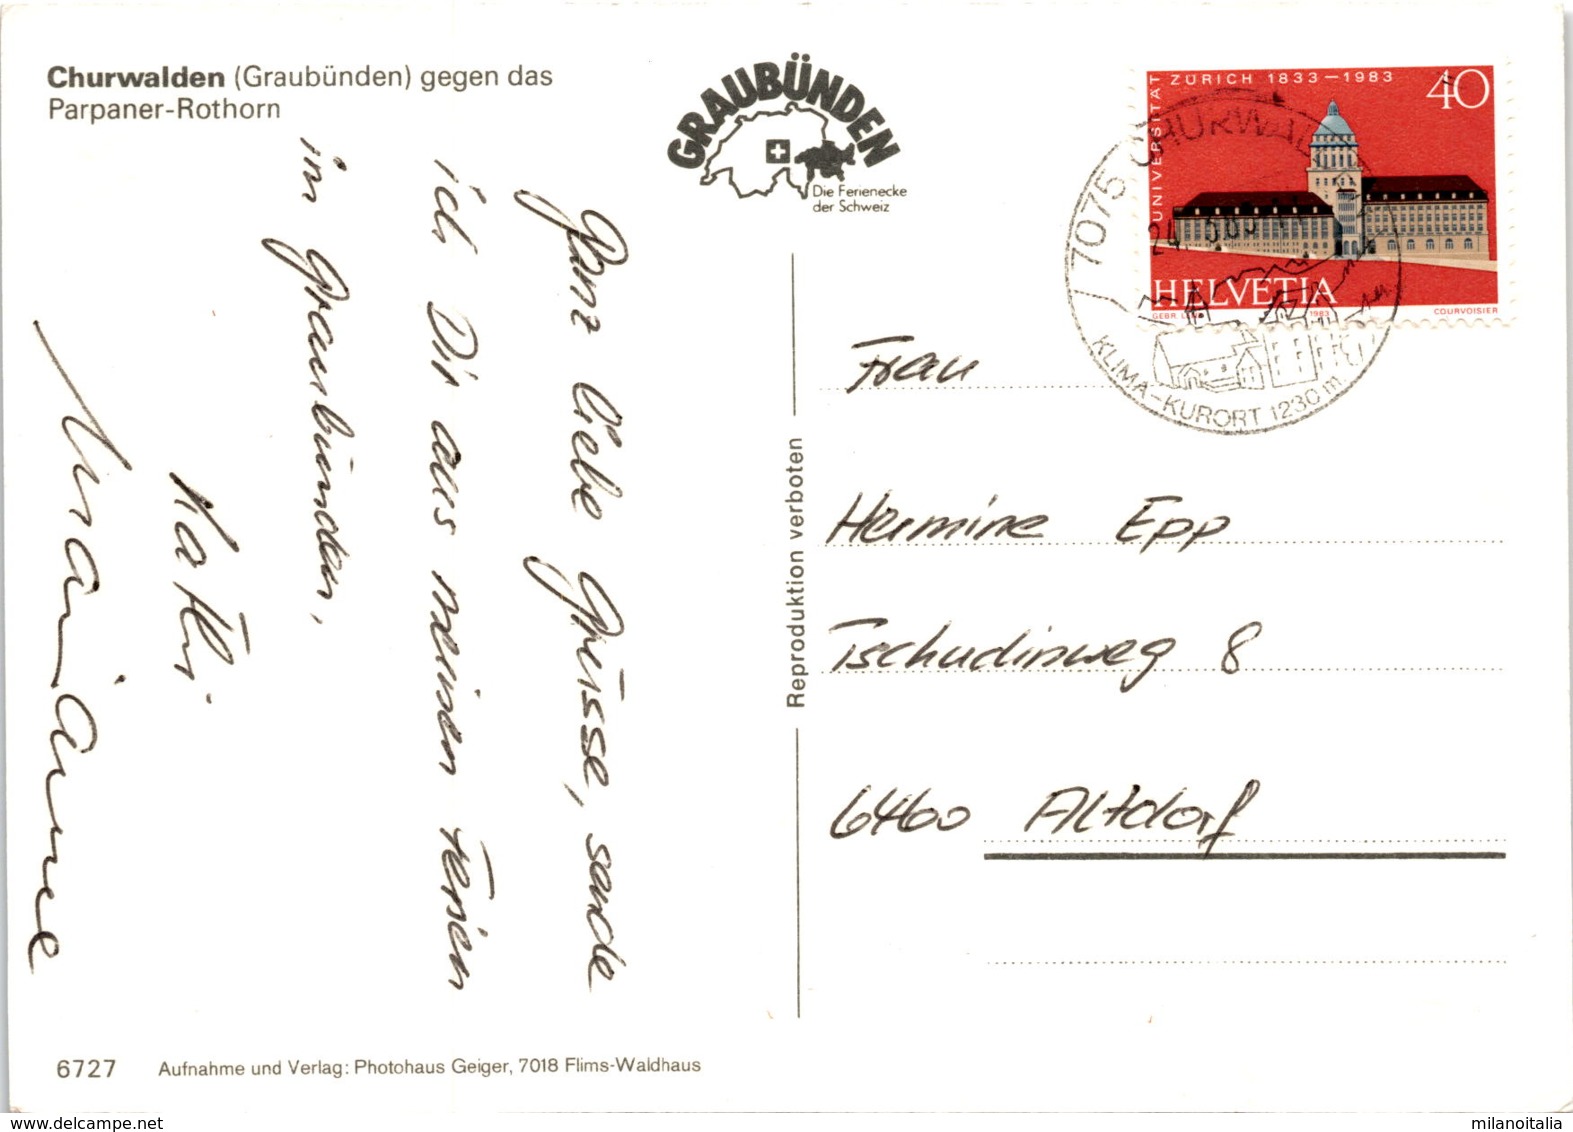 Churwalden (Graubünden) gegen das
Parpaner-Rothorn
GRAUBÜNDEN
Die Ferienecke
der Schweiz
Ganz liebe Grüsse, sende
ich Dir aus meinen Ferien
im Graubünden,
Kathi
Marianne
Reproduktion verboten
UNIVERSITÄT ZÜRICH 1833–1983
40
HELVETIA
1983
COURVOISIER
7075 CHURWALDEN
KLIMA-KURORT 1230m
Frau
Hermine Epp
Tschudinweg 8
6460 Altdorf
6727 Aufnahme und Verlag: Photohaus Geiger, 7018 Flims-Waldhaus
milanoitalia